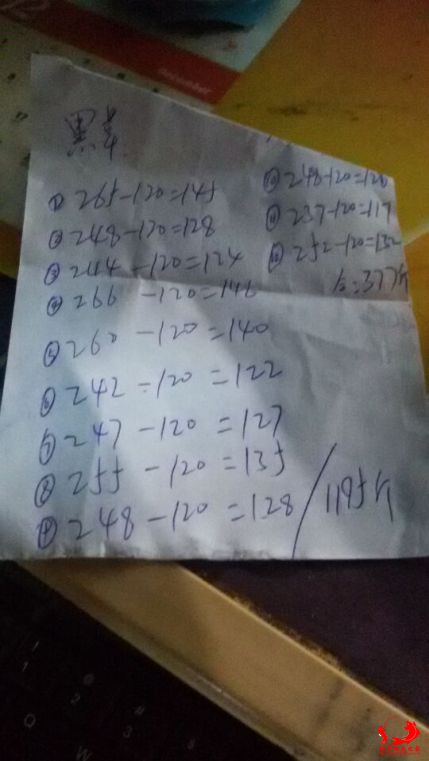 黑
① 265-120=145
② 248-120=128
③ 244-120=124
④ 266-120=146
⑤ 260-120=140
⑥ 242-120=122
⑦ 247-120=127
⑧ 255-120=135
⑨ 248-120=128/1195斤
⑩ 248-120=128
⑪ 237-120=117
⑫ 252-120=132
合:377斤
December